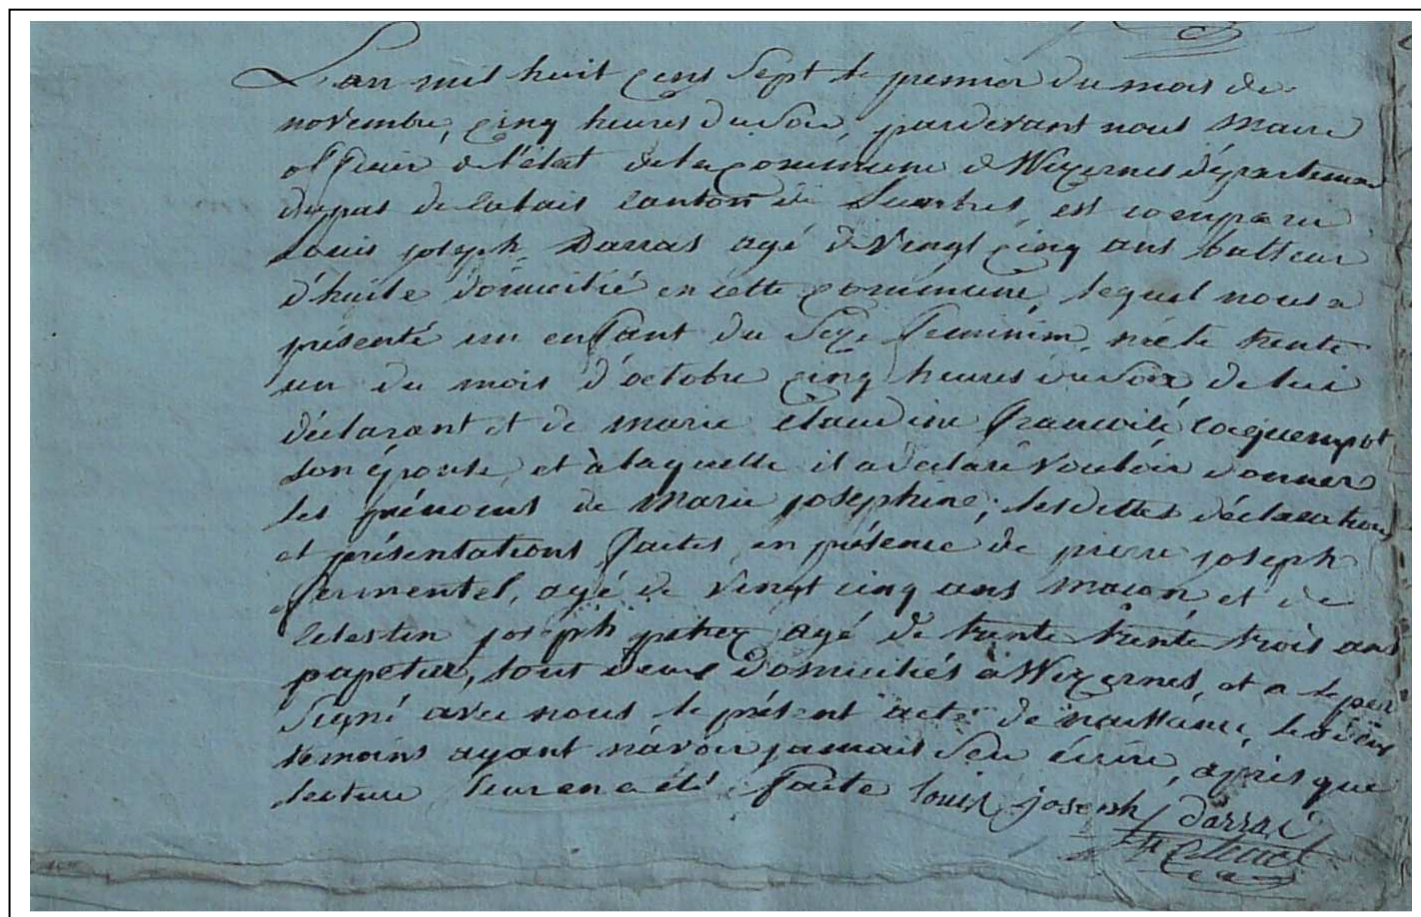 L'an mil huit cens sept le premier du mois de
novembre, cinq heures du soir, pardevant nous Maire
officier de l'état de la commune de Wizernes département
du pas de Calais canton de Lumbres, est comparu
Louis joseph Darras agé de Vingt cinq ans batteur
d'huile domicilié en cette commune, lequel nous a
présenté un enfant du Sexe feminin, née le trente
un du mois d'octobre cinq heures du soir de lui
déclarant et de marie Claudine françoise Cocquempot
son épouse, et à laquelle il a déclaré vouloir donner
les prénoms de Marie josephine; lesdittes déclarations
et présentations faites en présence de pierre joseph
fermentel, agé de Vingt cinq ans macon et de
Celestin joseph agé de trente trente trois ans
papetier, tout deux domiciliés à Wizernes, et a le per
Signé avec nous le présent acte de naissance, les
temoins ayant n'avoir jamais Seu écrire, après que
lecture leur en a été faite louis joseph darras